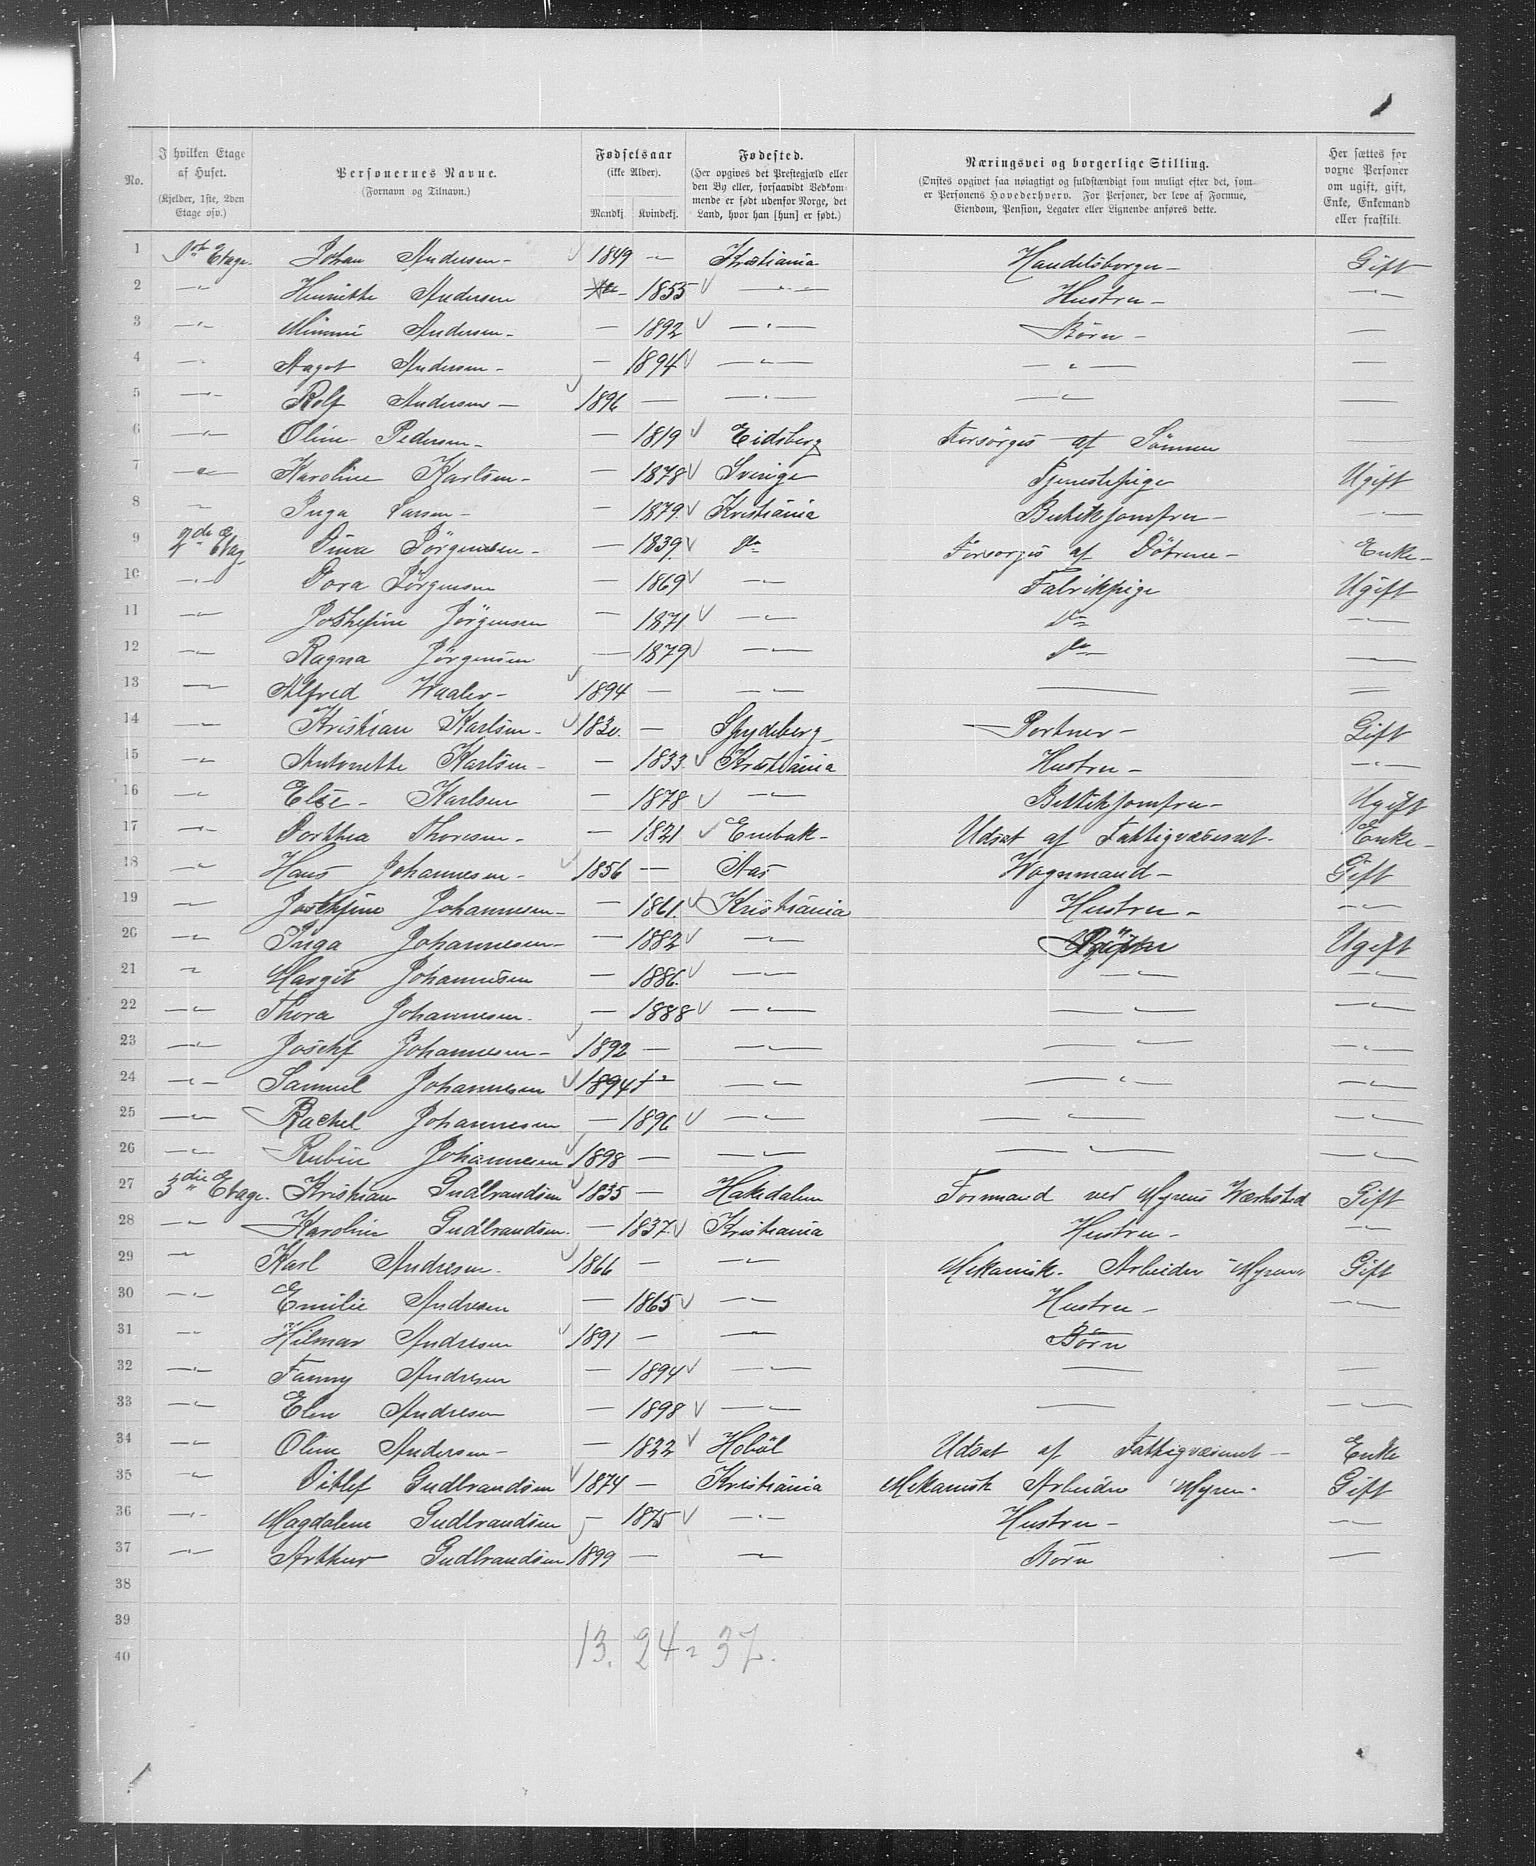 No. | I hvilken Etage af Huset. (Kjelder, 1ste, 2den Etage osv.) | Personernes Navne. (Fornavn og Tilnavn.) | Fødselsaar (ikke Alder). Mandkj. Kvindekj. | Fødested. (Her opgives det Prestegjæld eller den By eller, forsaavidt Vedkommende er født udenfor Norge, det Land, hvor han [hun] er født.) | Næringsvei og borgerlige Stilling. (Ønstes opgivet saa nøiagtigt og fuldstændigt som muligt efter det, som er Personens Hovederhverv. For Personer, der leve af Formue, Eiendom, Pension, Legater eller Lignende anføres dette. | Her sættes for voxne Personer om ugift, gift, Enke, Enkemand eller fraskilt.
1 Etage. Johan Andersen - 1849 - Kristiania Handelsborger - Gift
2 - " - Henriette Andersen - 1855 - " - Hustru - - " -
3 - " - Mimmi Andersen - - 1892 - " - Børn - -
4 - " - Aagot Andersen - - 1894 - " - - " -
5 - " - Rolf Andersen - 1896 - - " - - " - -
6 - " - Oline Pedersen - - 1819 Eidsberg Forsørges af Sønnen
7 - " - Karoline Karlsen - - 1878 Sverige Tjenestepige Ugift
8 - " - Inga Larsen - - 1879 Kristiania Butikjomfru - - " -
9 2den Etag. Jørgensen - - 1839 do Forsørges af Døtrene - Enke -
10 - " - Dora Jørgensen - 1869 - " - Fabrikpige Ugift
11 - " - Joshefine Jørgensen - 1871 - " - do - " -
12 - " - Ragna Jørgensen - 1879 - " - do - -
13 - " - Alfred Waaler - 1894 - - " - - -
14 - " - Kristian Karlsen - 1830. - Spydeberg Portner - Gift
15 - " - Antonette Karlsen - - 1833 Kristiania Hustru - - " -
16 - " - Else - Karlsen - 1878 - " - Butikjomfru - Ugift
17 - " - Dorthea Thoresen - - 1821 Enebak - Udsat af Fattigvæsenet - Enke -
18 - " - Hans Johannesen - 1856 - Aas Vognmand - Gift
19 - " - Josefine Johannesen - - 1861. Kristiania Hustru - - " -
20 - " - Inga Johannesen - - 1882 - " - Ugift
21 " Margit Johannesen - 1886. - " - - " - - " -
22 - " - Thora Johannesen. - 1888 - " - - " - - " -
23 - " - Josehf Johannesen - 1892 - - " - - " - - " -
24 - " - Samuel Johannesen 1894 - " - - " - - " -
25 - " - Rachel Johannesen - 1896 - " - - " - - " -
26 - " - Rubin Johannesen 1898 - - " - - " - - " -
27 3die Etage. Kristian Gudbrandsen 1835 - Hakedalen Formand ved Myrens Værksted Gift
28 - " - Karoline Gudbrandsen. - 1837. Kristiania Hustru - - " -
29 - " - Karl Andresen. 1866 - - " - Mekanisk. Arbeider "Myren" Gift
30 - " - Emilie Andresen - 1865 - " - Hustru - - " -
31 - " - Hilmar Andresen 1891 - - " - Børn
32 - " - Fanny Andresen - 1894 - " - -
33 - " - Elen Andresen - 1898 - " - - - " -
34 - " - Oline Andersen - - 1822 Hobøl Udsat af Fattigvæsenet - Enke
35 - " - Ditlef Gudbrandsen 1874 - Kristiania Mekanisk Arbeider Myren - Gift
36 - " - Magdalene Gudbrandsen - 1875 - " - Hustru - - " -
37 - " - Arthur Gudbrandsen 1899 - - " - Børn -
38
39
40
13. 24 = 37.